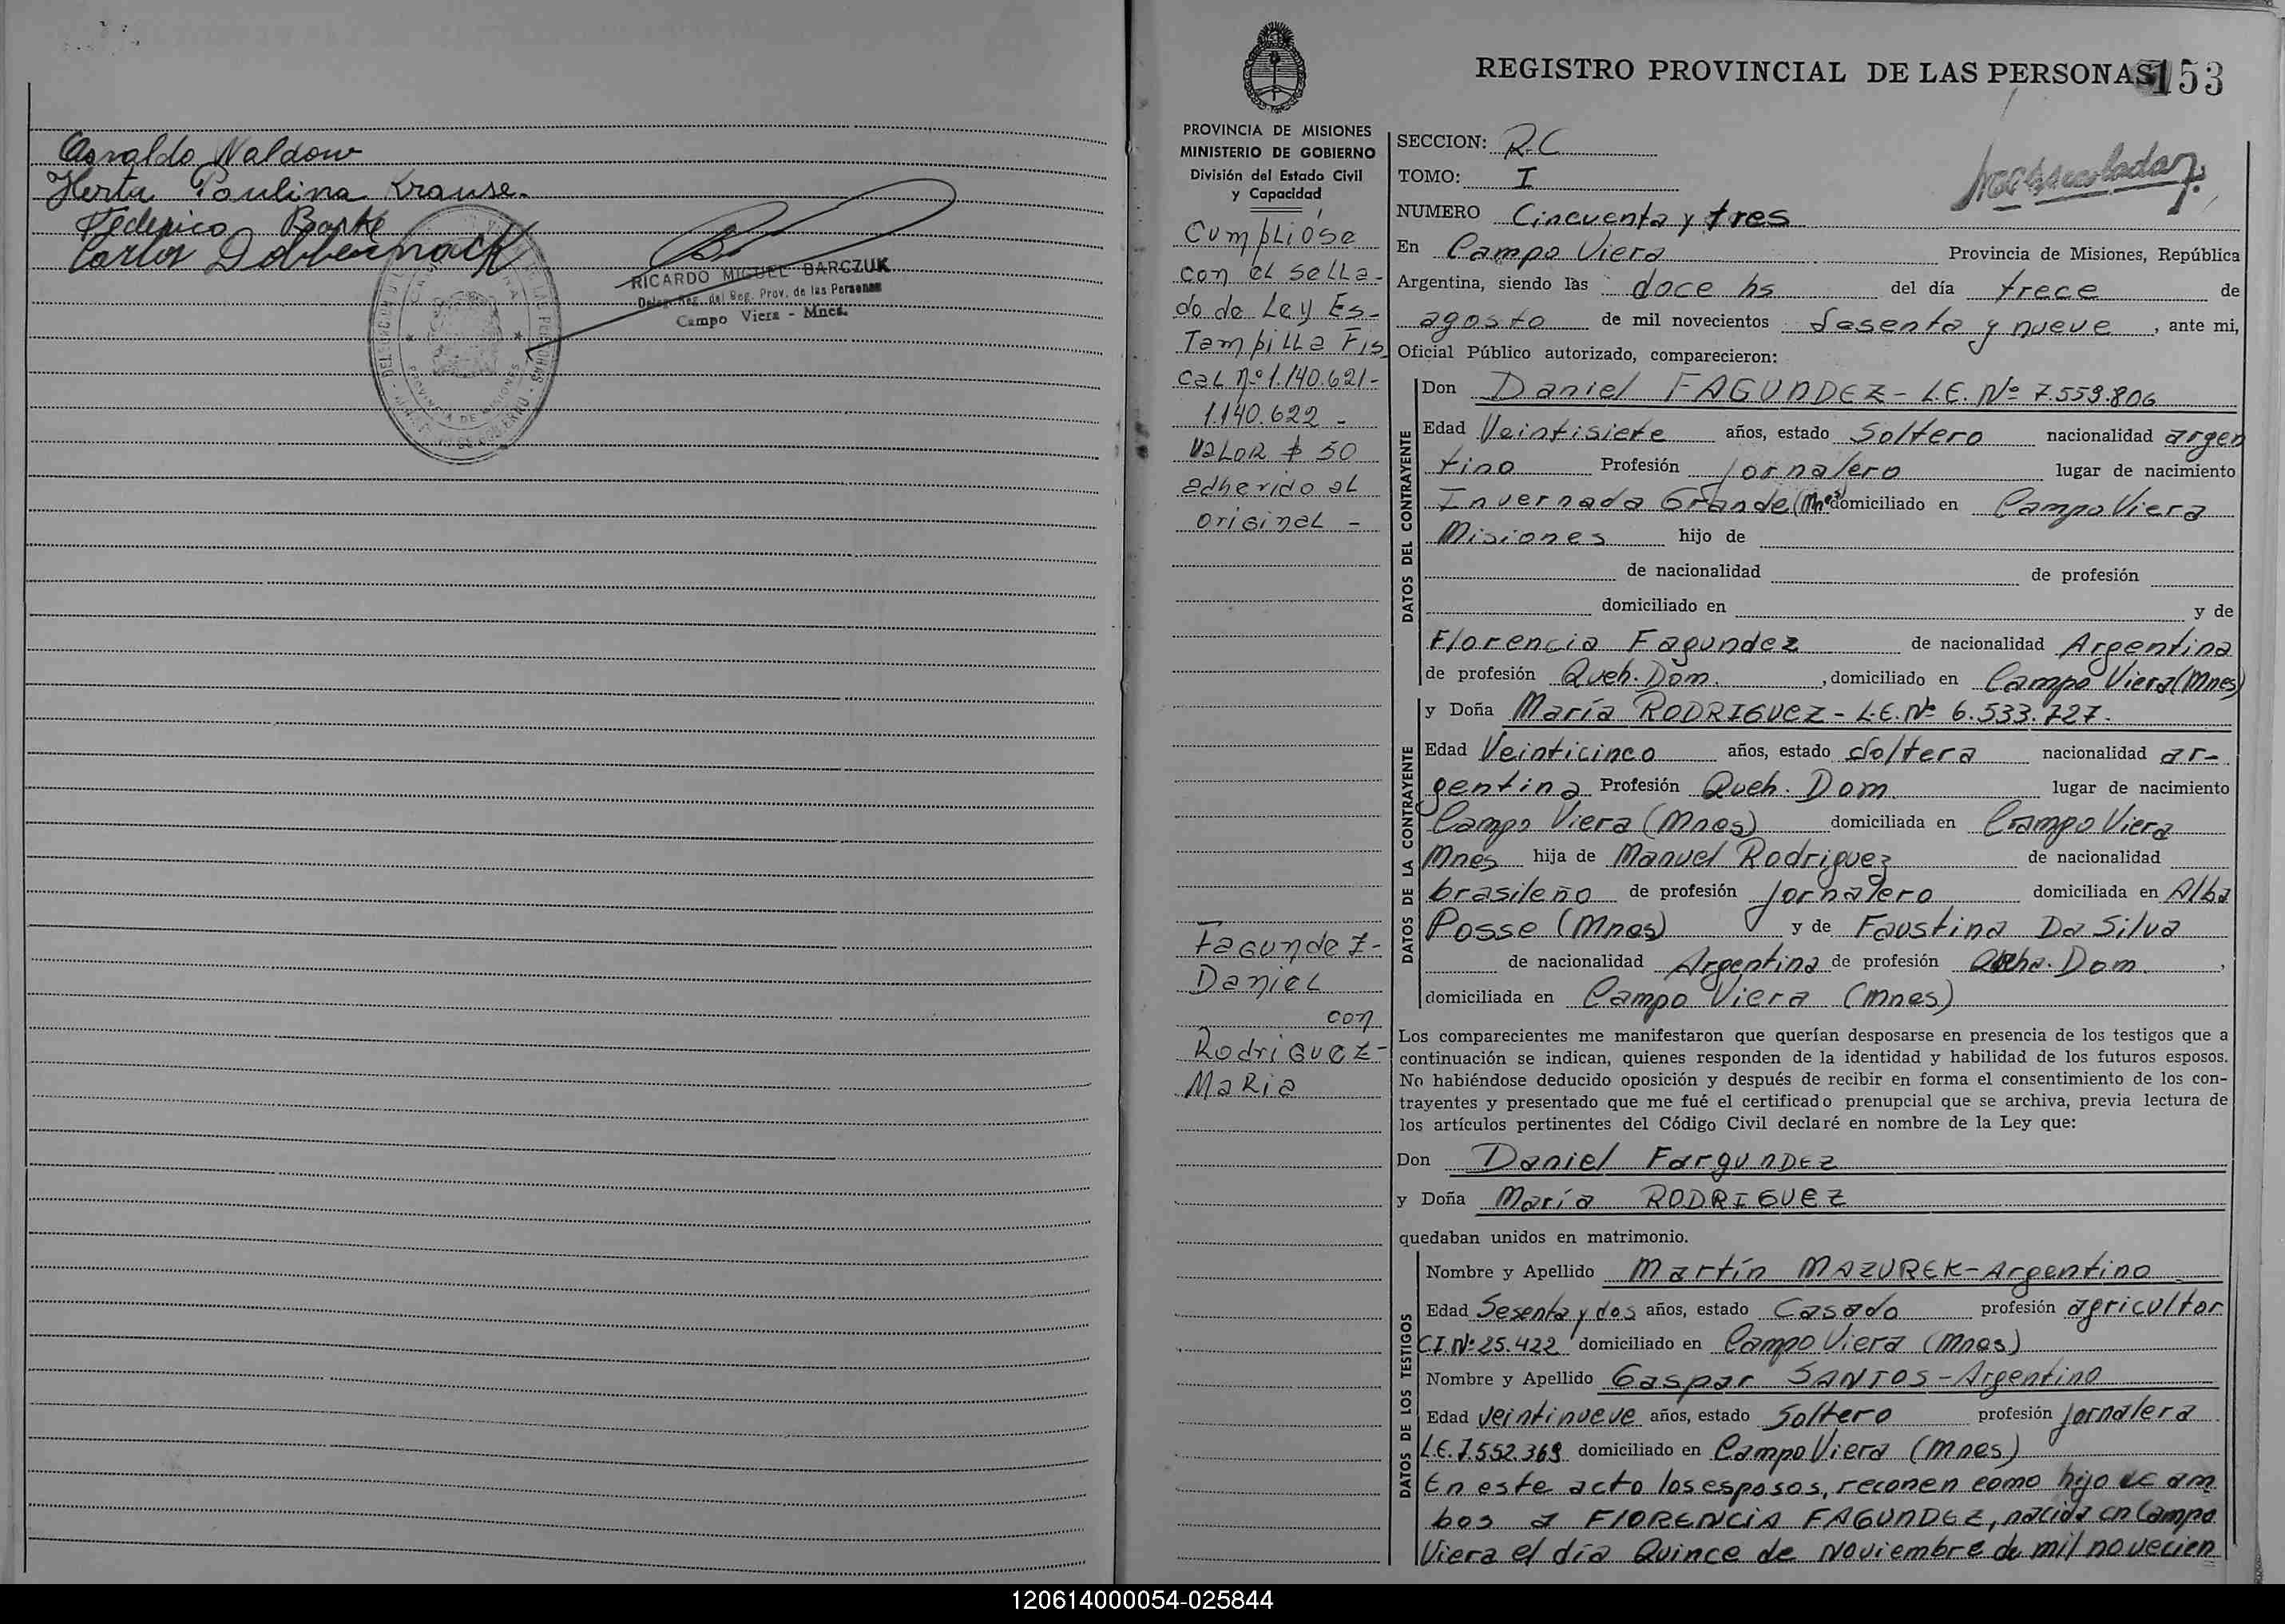 Osvaldo Waldow
Herta Paulina Krause.
Federico Barke
Carlos Dobbernack
RICARDO MIGUEL BARCZUK
Deleg. Reg. del Reg. Prov. de las Personas
Campo Viera - Mnes.
REGISTRO PROVINCIAL DE LAS PERSONAS
153
PROVINCIA DE MISIONES
MINISTERIO DE GOBIERNO
División del Estado Civil
y Capacidad
Cumplióse
con el sella-
do de Ley Es-
tampilla Fis
cal nº 1.140.621-
1.140.622 -
Valor $ 50
adherido al
original -
Fagundez-
Daniel
con
Rodriguez-
Maria
SECCION: R.C
TOMO: I
NUMERO Cincuenta y tres
En Campo Viera Provincia de Misiones, República
Argentina, siendo las doce hs del día trece de
agosto de mil novecientos Sesenta y nueve, ante mi,
Oficial Público autorizado, comparecieron:
DATOS DEL CONTRAYENTE
Don Daniel FAGUNDEZ - L.E. Nº 7.559.806
Edad Veintisiete años, estado Soltero nacionalidad argen
tino Profesión Jornalero lugar de nacimiento
Invernada Grande (Mnes) domiciliado en Campo Viera
Misiones hijo de
de nacionalidad de profesión
domiciliado en y de
Florencia Fagundez de nacionalidad Argentina
de profesión Queh. Dom. , domiciliado en Campo Viera (Mnes)
DATOS DE LA CONTRAYENTE
y Doña María RODRIGUEZ - L.E. Nº 6.533.727.
Edad Veinticinco años, estado Soltera nacionalidad ar-
gentina Profesión Queh. Dom. lugar de nacimiento
Campo Viera (Mnes) domiciliada en Campo Viera
Mnes hija de Manuel Rodriguez de nacionalidad
brasileño de profesión Jornalero domiciliada en Alba
Posse (Mnes) y de Faustina Da Silva
de nacionalidad Argentina de profesión Dom. ,
domiciliada en Campo Viera (Mnes)
Los comparecientes me manifestaron que querían desposarse en presencia de los testigos que a
continuación se indican, quienes responden de la identidad y habilidad de los futuros esposos.
No habiéndose deducido oposición y después de recibir en forma el consentimiento de los con-
trayentes y presentado que me fué el certificado prenupcial que se archiva, previa lectura de
los artículos pertinentes del Código Civil declaré en nombre de la Ley que:
Don Daniel FargunDEZ
y Doña María RODRIGUEZ
quedaban unidos en matrimonio.
DATOS DE LOS TESTIGOS
Nombre y Apellido Martín MAZUREK - Argentino
Edad Sesenta y dos años, estado Casado profesión agricultor
C.I. Nº 25.422 domiciliado en Campo Viera (Mnes)
Nombre y Apellido Gaspar SANTOS - Argentino
Edad veintinueve años, estado Soltero profesión Jornalera
L.E. 7.552.369 domiciliado en Campo Viera (Mnes)
En este acto los esposos, reconen como hijo de am
bos a FLORENCIA FAGUNDEZ, nacida en Campo
Viera el día Quince de Noviembre de mil novecien
120614000054-025844